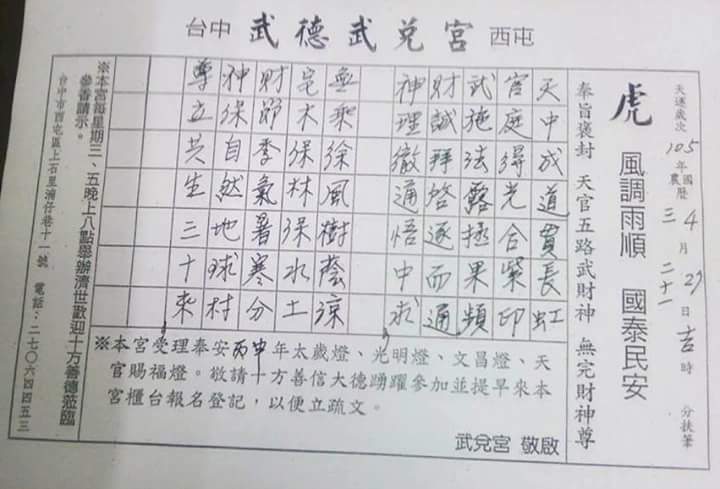 台中 武德武兌宮 西屯
天運歲次 105 年 國農曆 4 三 月 27 二十一 日 吉 時 分扶筆
虎 風調雨順 國泰民安
奉旨褒封 天官五路武財神 無完財神尊
天中成道貫長虹
官庭得光合紫印
武施法露極果頻
財誠拜啓逐而通
神理徹通悟中求
無乘徐風樹蔭涼
宅木保林保水土
財節季氣暑寒分
神保自然地球村
尊立共生三十來
※本宮受理奉安丙申年太歲燈、光明燈、文昌燈、天
官賜福燈。敬請十方善信大德踴躍參加並提早來本
宮櫃台報名登記,以便立疏文。
武兌宮 敬啟
※本宮每星期三、五晚上八點舉辦濟世歡迎十方善德蒞臨
參香請示。
台中市西屯區上石里湳仔巷十一號 電話:二七○六四四五三